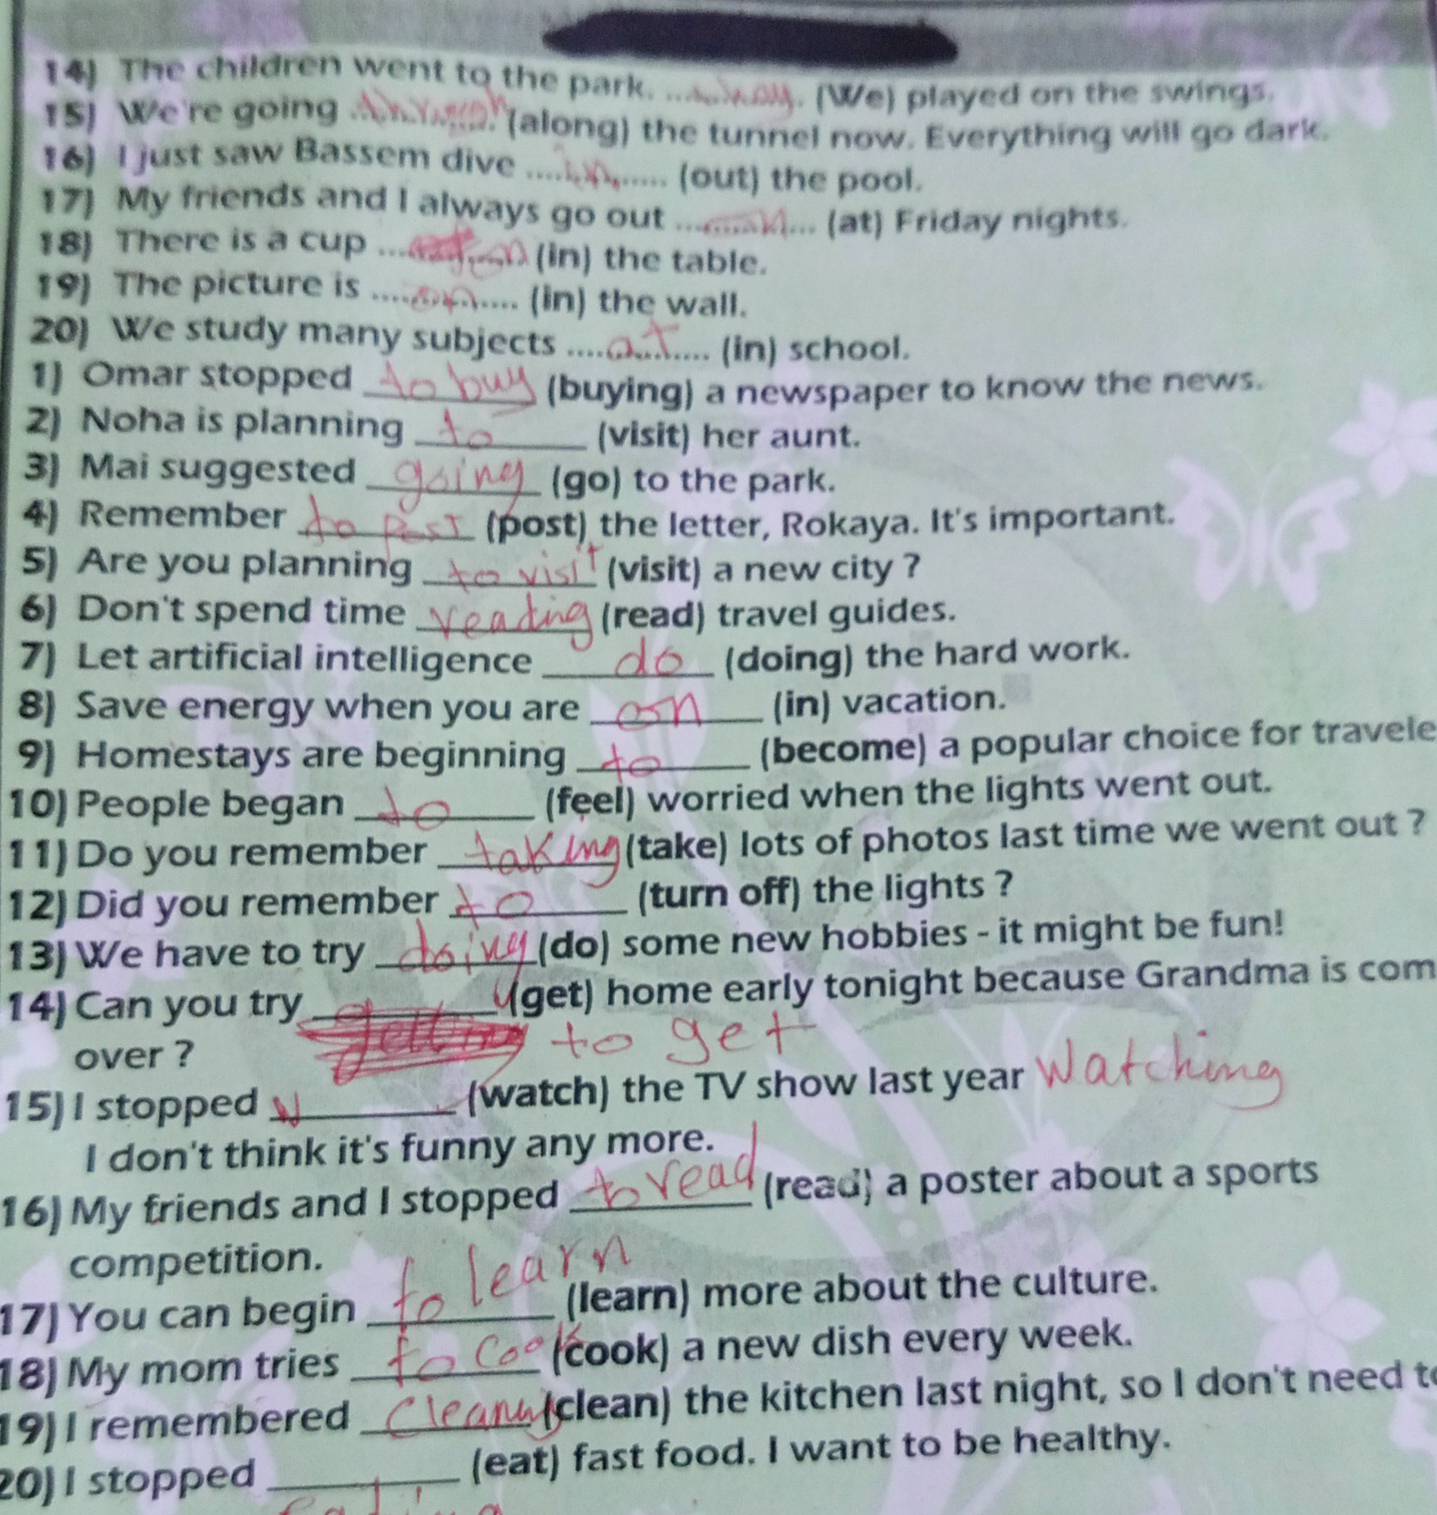 14) The children went to the park. ...They... (We) played on the swings.
15) We're going ...through... (along) the tunnel now. Everything will go dark.
16) I just saw Bassem dive ...in... (out) the pool.
17) My friends and I always go out ...on... (at) Friday nights.
18) There is a cup ...on (in) the table.
19) The picture is ...on... (in) the wall.
20) We study many subjects ...at... (in) school.
1) Omar stopped to buy (buying) a newspaper to know the news.
2) Noha is planning to (visit) her aunt.
3) Mai suggested going (go) to the park.
4) Remember to post (post) the letter, Rokaya. It's important.
5) Are you planning to visit (visit) a new city ?
6) Don't spend time reading (read) travel guides.
7) Let artificial intelligence do (doing) the hard work.
8) Save energy when you are on (in) vacation.
9) Homestays are beginning to (become) a popular choice for travele
10) People began to (feel) worried when the lights went out.
11) Do you remember taking (take) lots of photos last time we went out ?
12) Did you remember to (turn off) the lights ?
13) We have to try doing (do) some new hobbies - it might be fun!
14) Can you try getting (get) home early tonight because Grandma is com
over ? to get
15) I stopped (watch) the TV show last year Watching
I don't think it's funny any more.
16) My friends and I stopped to read (read) a poster about a sports
competition.
17) You can begin to learn (learn) more about the culture.
18) My mom tries to cook (cook) a new dish every week.
19) I remembered cleaning (clean) the kitchen last night, so I don't need to
20) I stopped (eat) fast food. I want to be healthy.